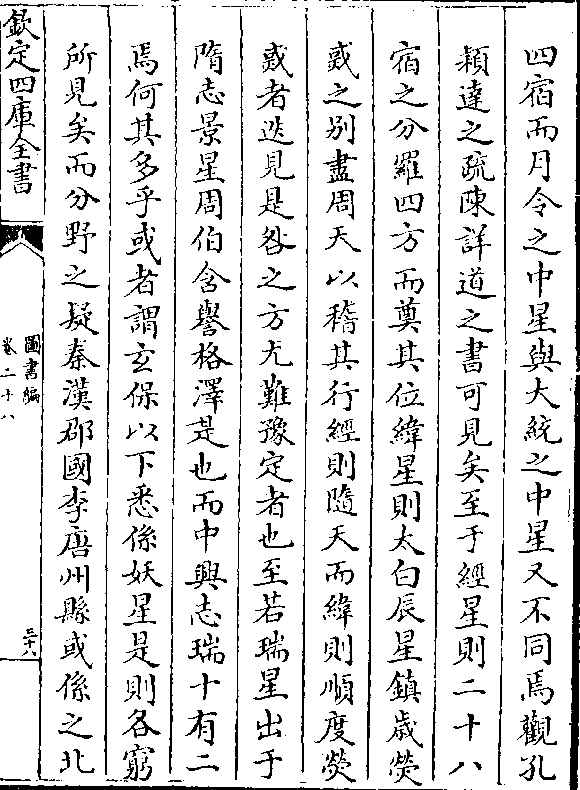 四宿而月令之中星與大統之中星又不同焉觀孔
穎達之疏陳詳道之書可見矣至于經星則二十八
宿之分羅四方而奠其位緯星則太白辰星鎮歳熒
惑之别盡周天以稽其行經則隨天而緯則順度熒
惑者迭見是咎之方尤難豫定者也至若瑞星出于
隋志景星周伯含譽格澤是也而中興志瑞十有二
焉何其多乎或者謂玄保以下悉係妖星是則各窮
所見矣而分野之疑秦漢郡國李唐州縣或係之北
欽定四庫全書
圖書編
卷二十八
三十六